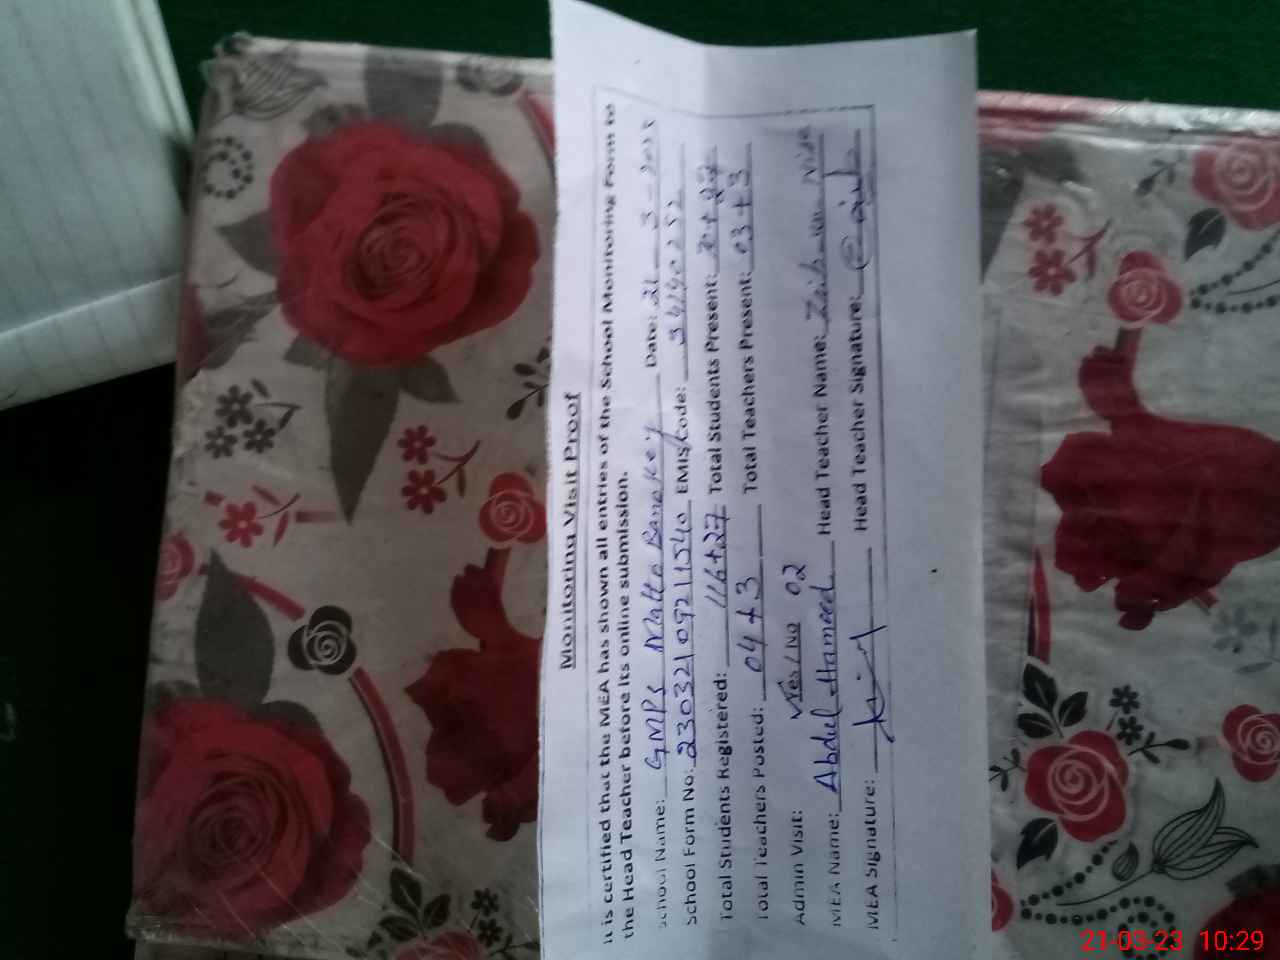 Monitoring Visit Proof
It is certified that the MEA has shown all entries of the School Monitoring Form to
the Head Teacher before its online submission.
School Name: GMPS Malto Banokey Date: 21-3-2023
School Form No: 23032109211540 EMIS Code: 34140252
Total Students Registered: 116+27 Total Students Present: 70+27
Total Teachers Posted: 04+3 Total Teachers Present: 03+3
Admin Visit: Yes/No 02
MEA Name: Abdul Hameed Head Teacher Name: Zaib-un-Nisa
MEA Signature: Head Teacher Signature:
21-03-23 10:29